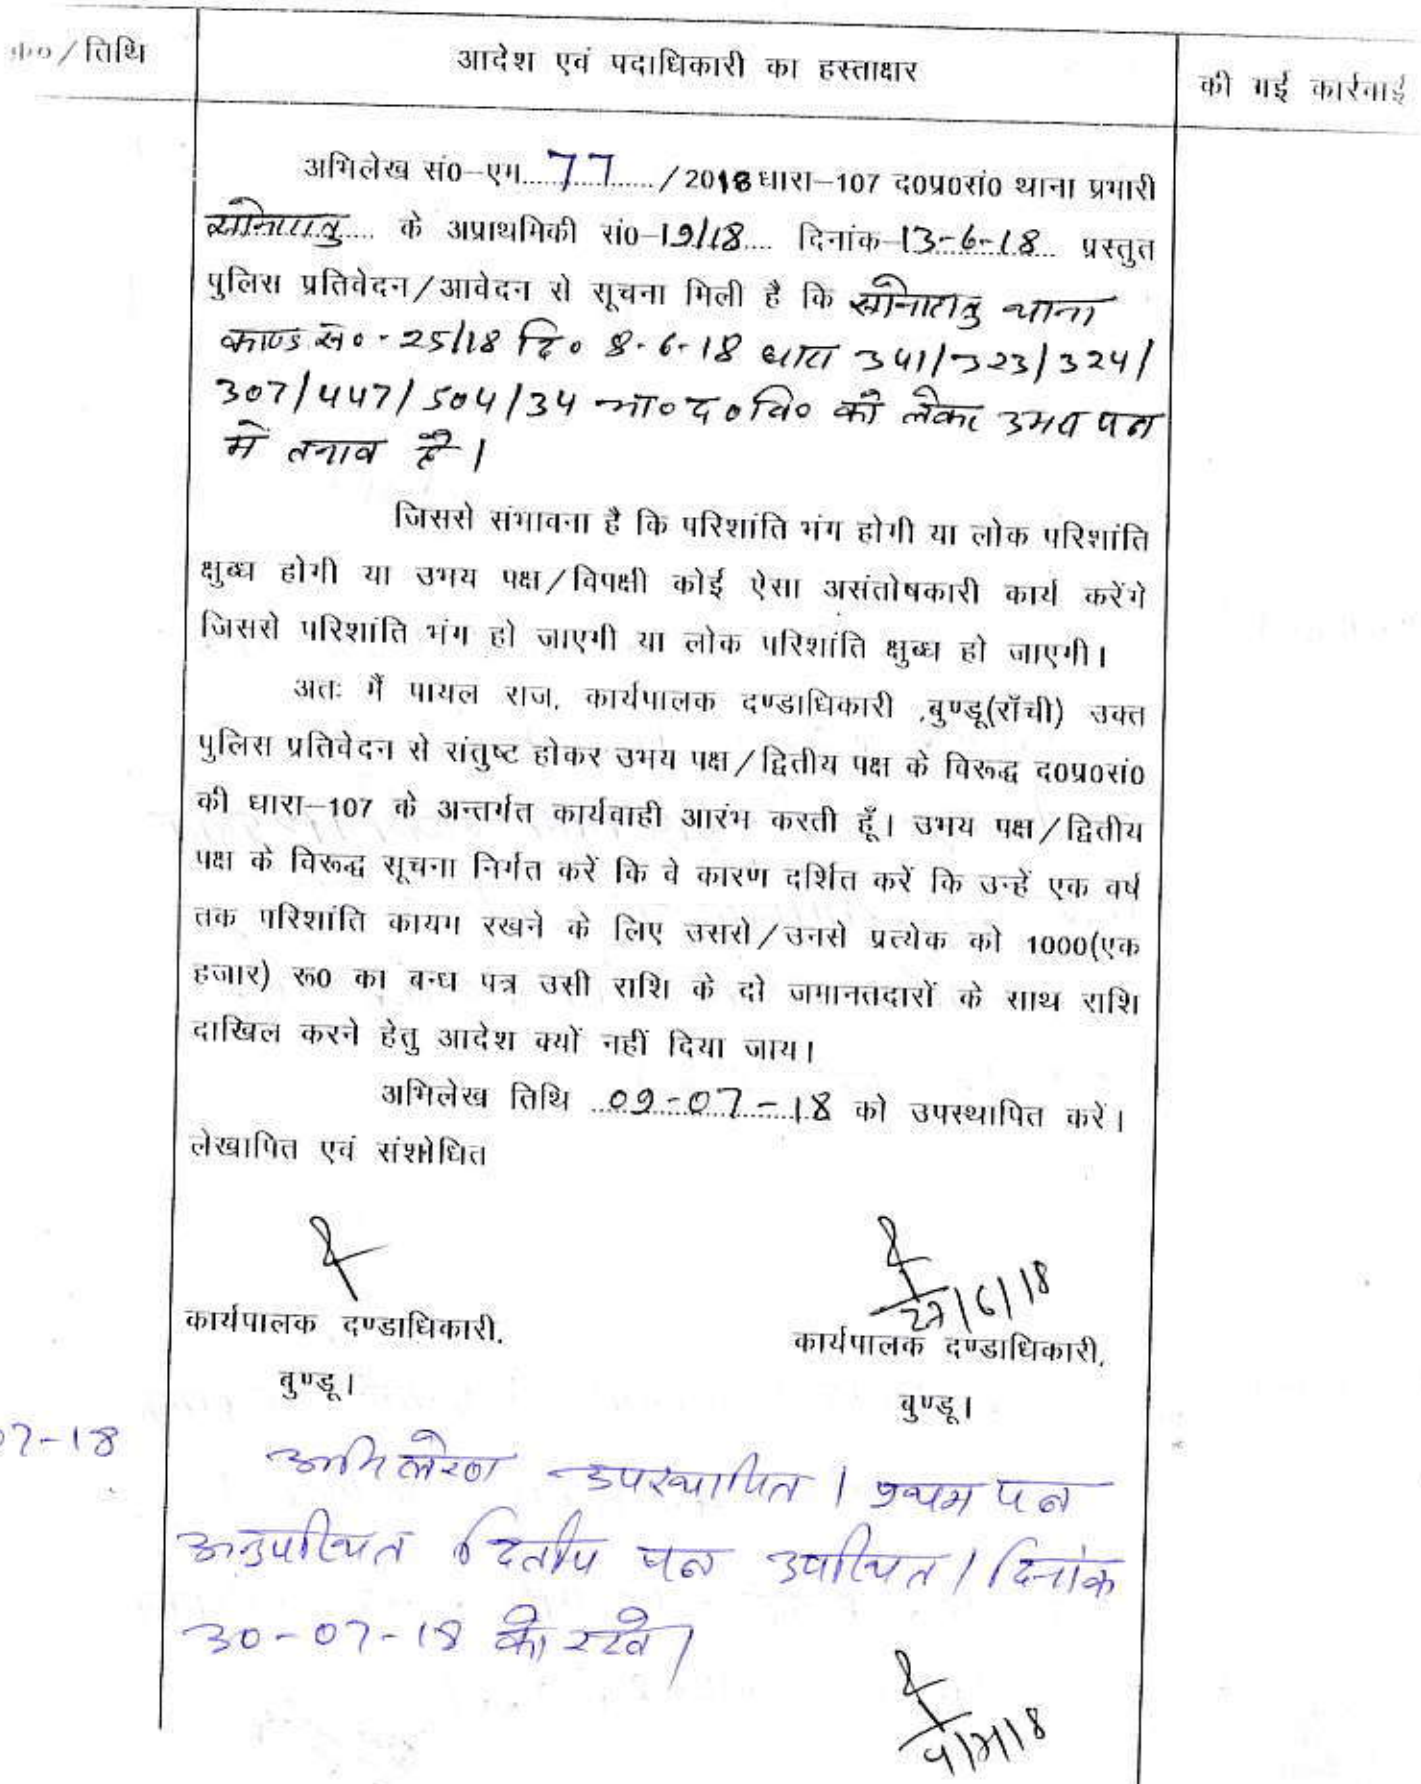 क्र०/तिथि
आदेश एवं पदाधिकारी का हस्ताक्षर
की गई कार्रवाई
अभिलेख सं0-एम 77 /2018 धारा-107 द0प्र0सं0 थाना प्रभारी
सोनाहातु के अप्राथमिकी सं0-19/18 दिनांक-13-6-18 प्रस्तुत
पुलिस प्रतिवेदन/आवेदन से सूचना मिली है कि सोनाहातु थाना
काण्ड सं०-25/18 दि० 8-6-18 धारा 341/323/324/
307/447/504/34 भा०द०वि० को लेकर उभय पक्ष
में तनाव है।
जिससे संभावना है कि परिशांति भंग होगी या लोक परिशांति
क्षुब्ध होगी या उभय पक्ष/विपक्षी कोई ऐसा असंतोषकारी कार्य करेंगे
जिससे परिशांति भंग हो जाएगी या लोक परिशांति क्षुब्ध हो जाएगी।
अतः मैं पायल राज, कार्यपालक दण्डाधिकारी ,बुण्डू(राँची) उक्त
पुलिस प्रतिवेदन से संतुष्ट होकर उभय पक्ष/द्वितीय पक्ष के विरूद्ध द0प्र0सं0
की धारा-107 के अन्तर्गत कार्यवाही आरंभ करती हूँ। उभय पक्ष/द्वितीय
पक्ष के विरूद्ध सूचना निर्गत करें कि वे कारण दर्शित करें कि उन्हें एक वर्ष
तक परिशांति कायम रखने के लिए उससे/उनसे प्रत्येक को 1000(एक
हजार) रू0 का बन्ध पत्र उसी राशि के दो जमानतदारों के साथ राशि
दाखिल करने हेतु आदेश क्यों नहीं दिया जाय।
अभिलेख तिथि 09-07-18 को उपस्थापित करें।
लेखापित एवं संशोधित
27/6/18
कार्यपालक दण्डाधिकारी,
कार्यपालक दण्डाधिकारी,
बुण्डू।
बुण्डू।
07-18
अभिलेख उपस्थापित। प्रथम पक्ष
अनुपस्थित द्वितीय पक्ष उपस्थित। दिनांक
30-07-18 को रखें।